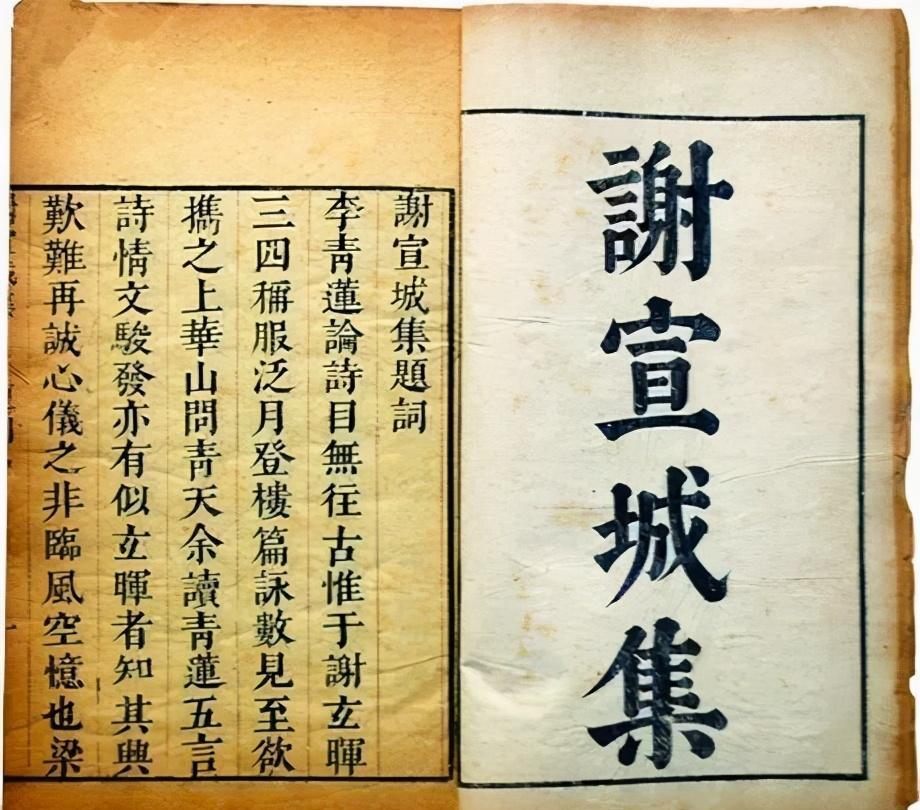 謝宣城集
謝宣城集題詞
李青蓮論詩目無往古惟于謝玄暉
三四稱服泛月登樓篇詠數見至欲
攜之上華山問青天余讀青蓮五言
詩情文駿發亦有似玄暉者知其興
歎難再誠心儀之非臨風空憶也梁